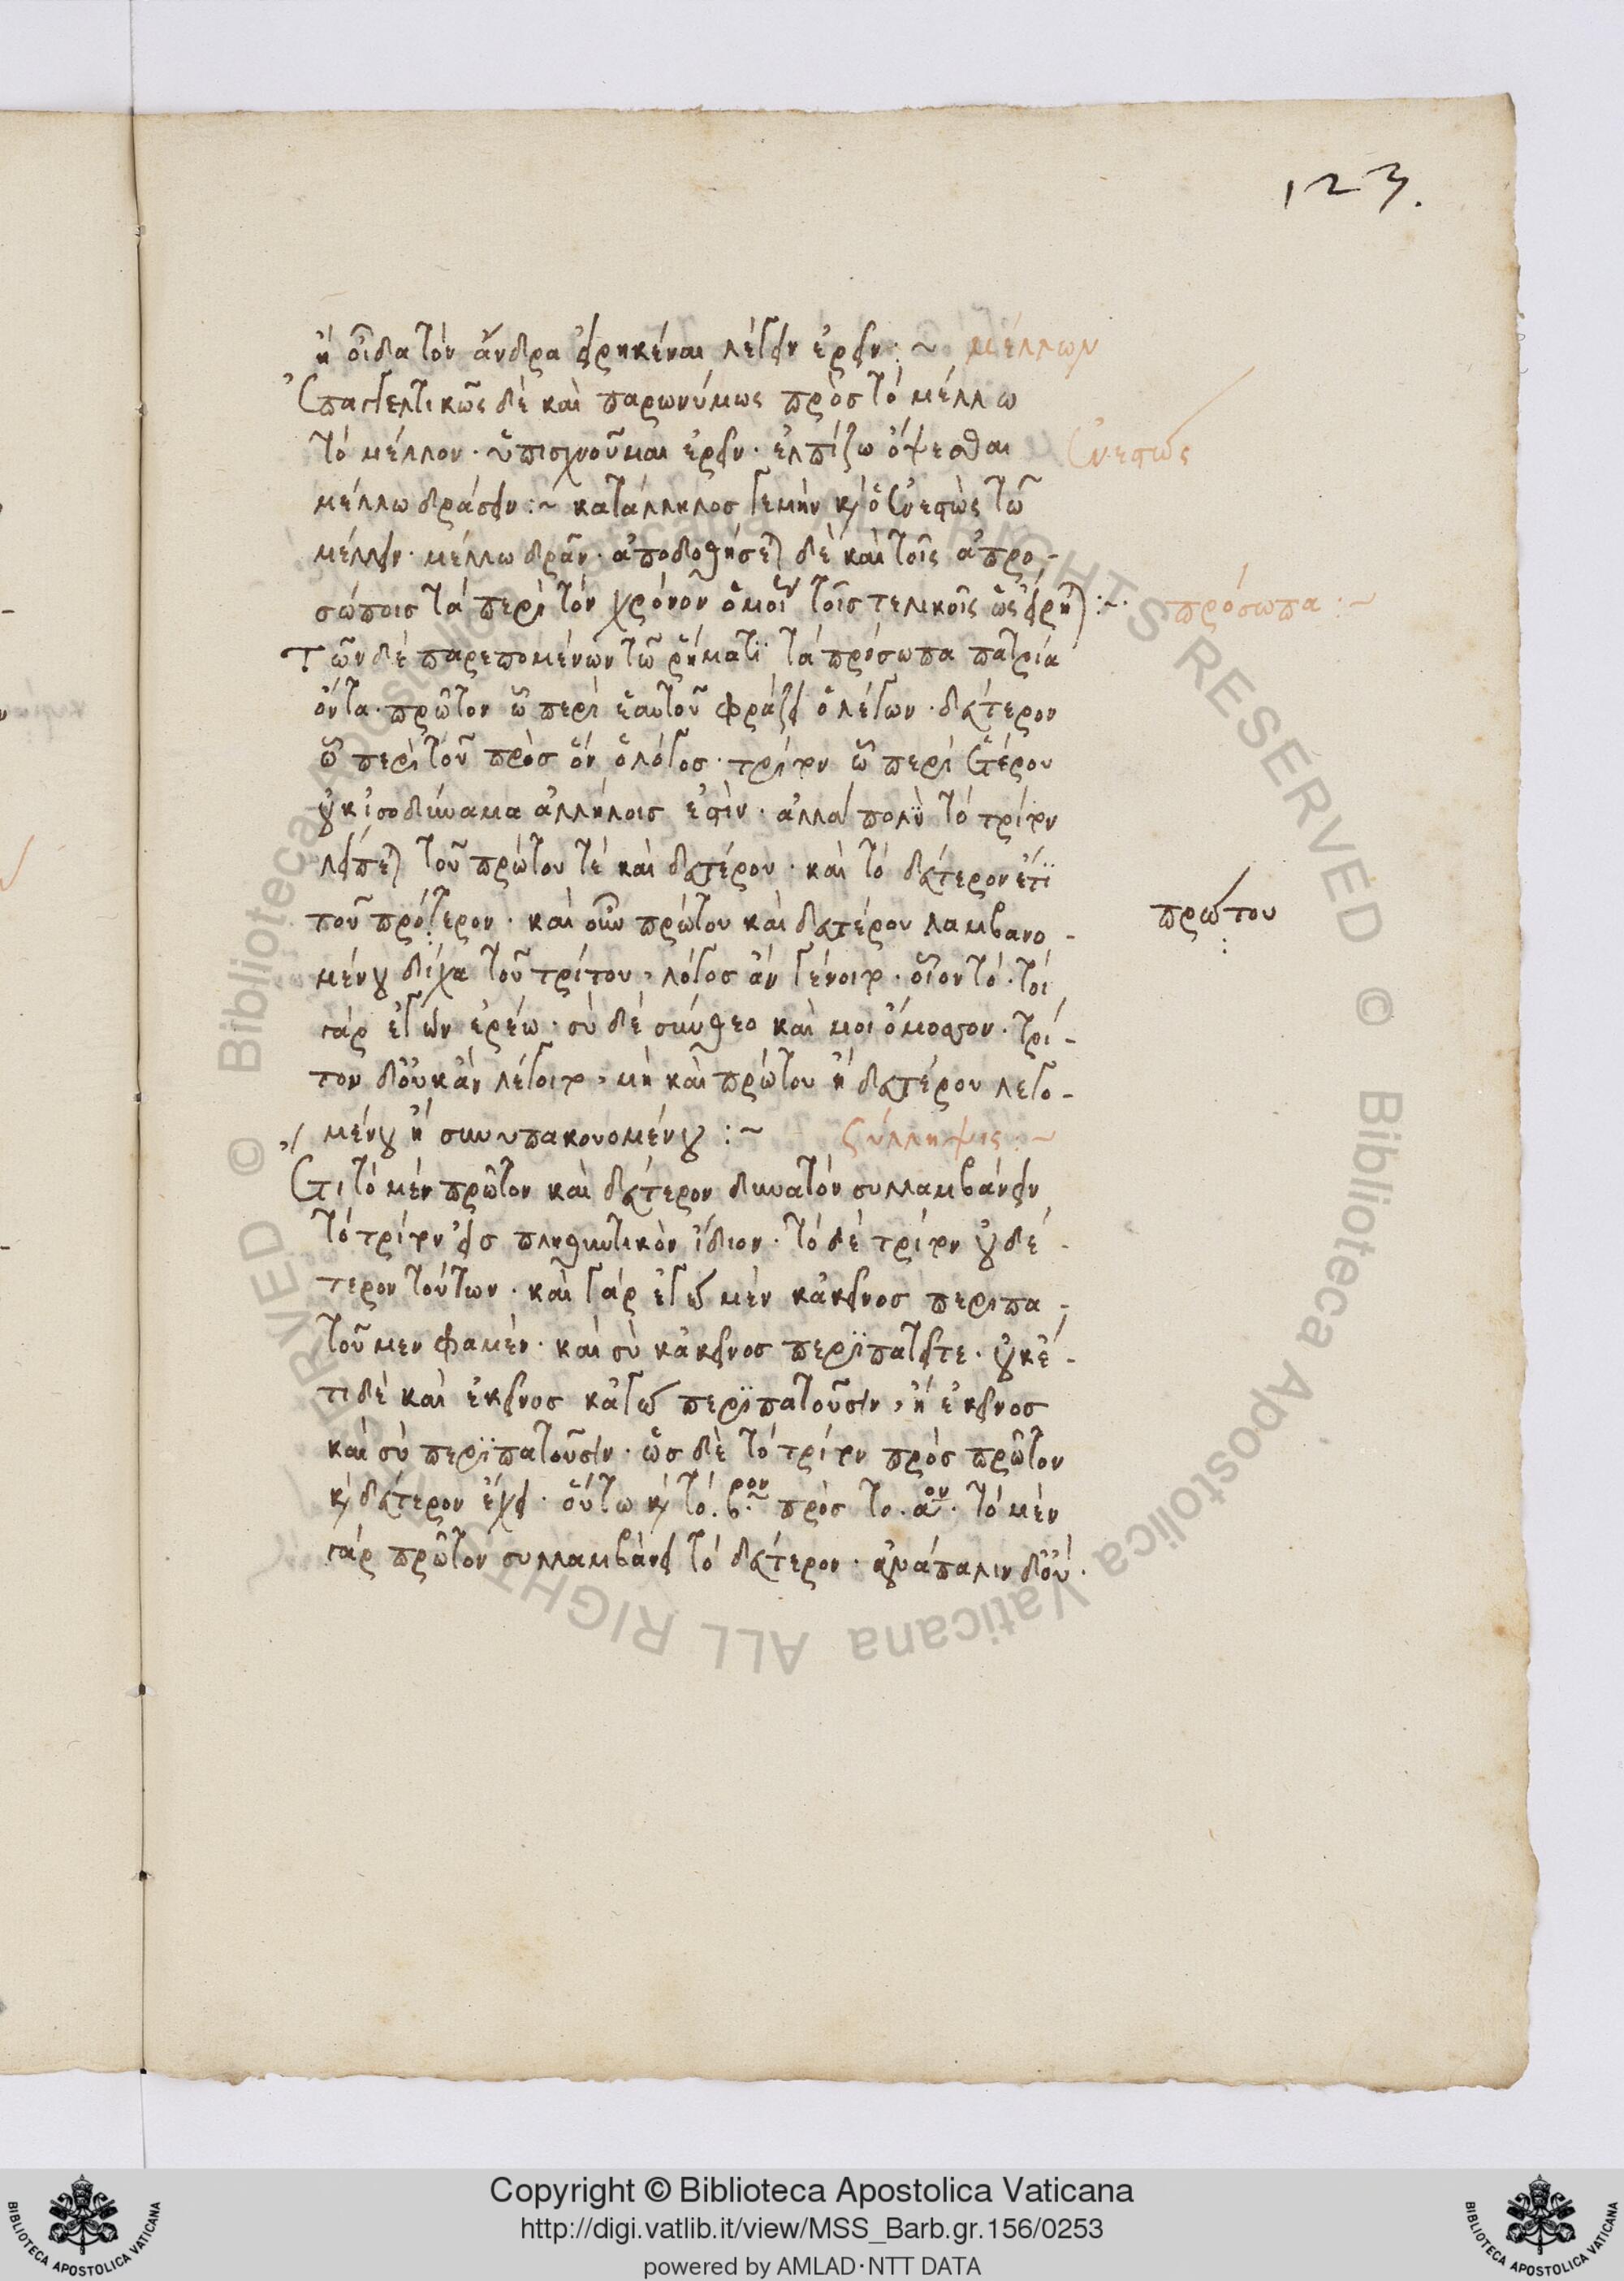 123.
ἢ οἶδα τὸν ἄνδρα εἰρηκέναι λέγειν ἐρεῖν :~ μέλλων
Ἐπαγγελτικῶς δὲ καὶ παρωνύμως πρὸς τὸ μέλλω
τὸ μέλλον · ὑπισχνοῦμαι ἐρεῖν · ἐλπίζω ὄψεσθαι
ἐνεστώς
μέλλω δράσειν :~ κατάλληλος γεμὴν κ ὁ ἐνεστὼς τῶ
μέλλειν · μέλλω δρᾶν · ἀποδοθήσεται δὲ καὶ τοῖς ἀπρο-
σώποις τὰ περὶ τὸν χρόνον ὁμοῦ τοῖς τελικοῖς ὡς εἴρηται :~
πρόσωπα :~
Τῶν δὲ παρεπομένων τῶ ῥήματι τὰ πρόσωπα πατρία
ὄντα · πρῶτον ὧ περὶ ἑαυτοῦ φράζει ὁ λέγων · δεύτερον
ὧ περὶ τοῦ πρὸς ὃν ὁ λόγος · τρίτον ὧ περὶ ἑτέρου
οὐκ ἰσοδύναμα ἀλλήλοις ἐστὶν · ἀλλὰ πολὺ τὸ τρίτον
λείπεται τοῦ πρώτου τὲ καὶ δευτέρου · καὶ τὸ δεύτερον ἔτι
που πρότερον · καὶ οὖν πρώτου καὶ δευτέρου λαμβανο-
πρώτου
μένου δίχα τοῦ τρίτου, λόγος ἂν γένοιτο · οἷον τὸ · τοὶ
γὰρ ἐγὼν ἐρέω · σὺ δὲ σύνθεο καὶ μοι ὄμοσσον · τρί-
του δ' οὐκ ἂν λέγοιτο, μὴ καὶ πρώτου ἢ δευτέρου λεγο-
μένου ἢ συνυπακουομένου :~ ζύλληψις :~
Ἔτι τὸ μὲν πρῶτον καὶ δεύτερον δυνατὸν συλλαμβάνειν
τὸ τρίτον εἰς πληθυντικὸν ἴδιον · τὸ δὲ τρίτον οὐδέ-
τερον τούτων · καὶ γὰρ ἐγὼ μὲν κἀκεῖνος περιπα-
τοῦμεν φαμὲν · καὶ σὺ κἀκεῖνος περιπατεῖτε · οὐκέ-
τι δὲ καὶ ἐκεῖνος κἀγὼ περιπατοῦσιν, ἢ ἐκεῖνος
καὶ σὺ περιπατοῦσιν · ὡς δὲ τὸ τρίτον πρὸς πρῶτον
κ δεύτερον ἔχει · οὕτω κ τὸ · β ρον πρὸς το · α ον · τὸ μὲν
γὰρ πρῶτον συλλαμβάνει τὸ δεύτερον · ἀνάπαλιν δ' οὔ ·
Copyright © Biblioteca Apostolica Vaticana
http://digi.vatlib.it/view/MSS_Barb.gr.156/0253
powered by AMLAD·NTT DATA